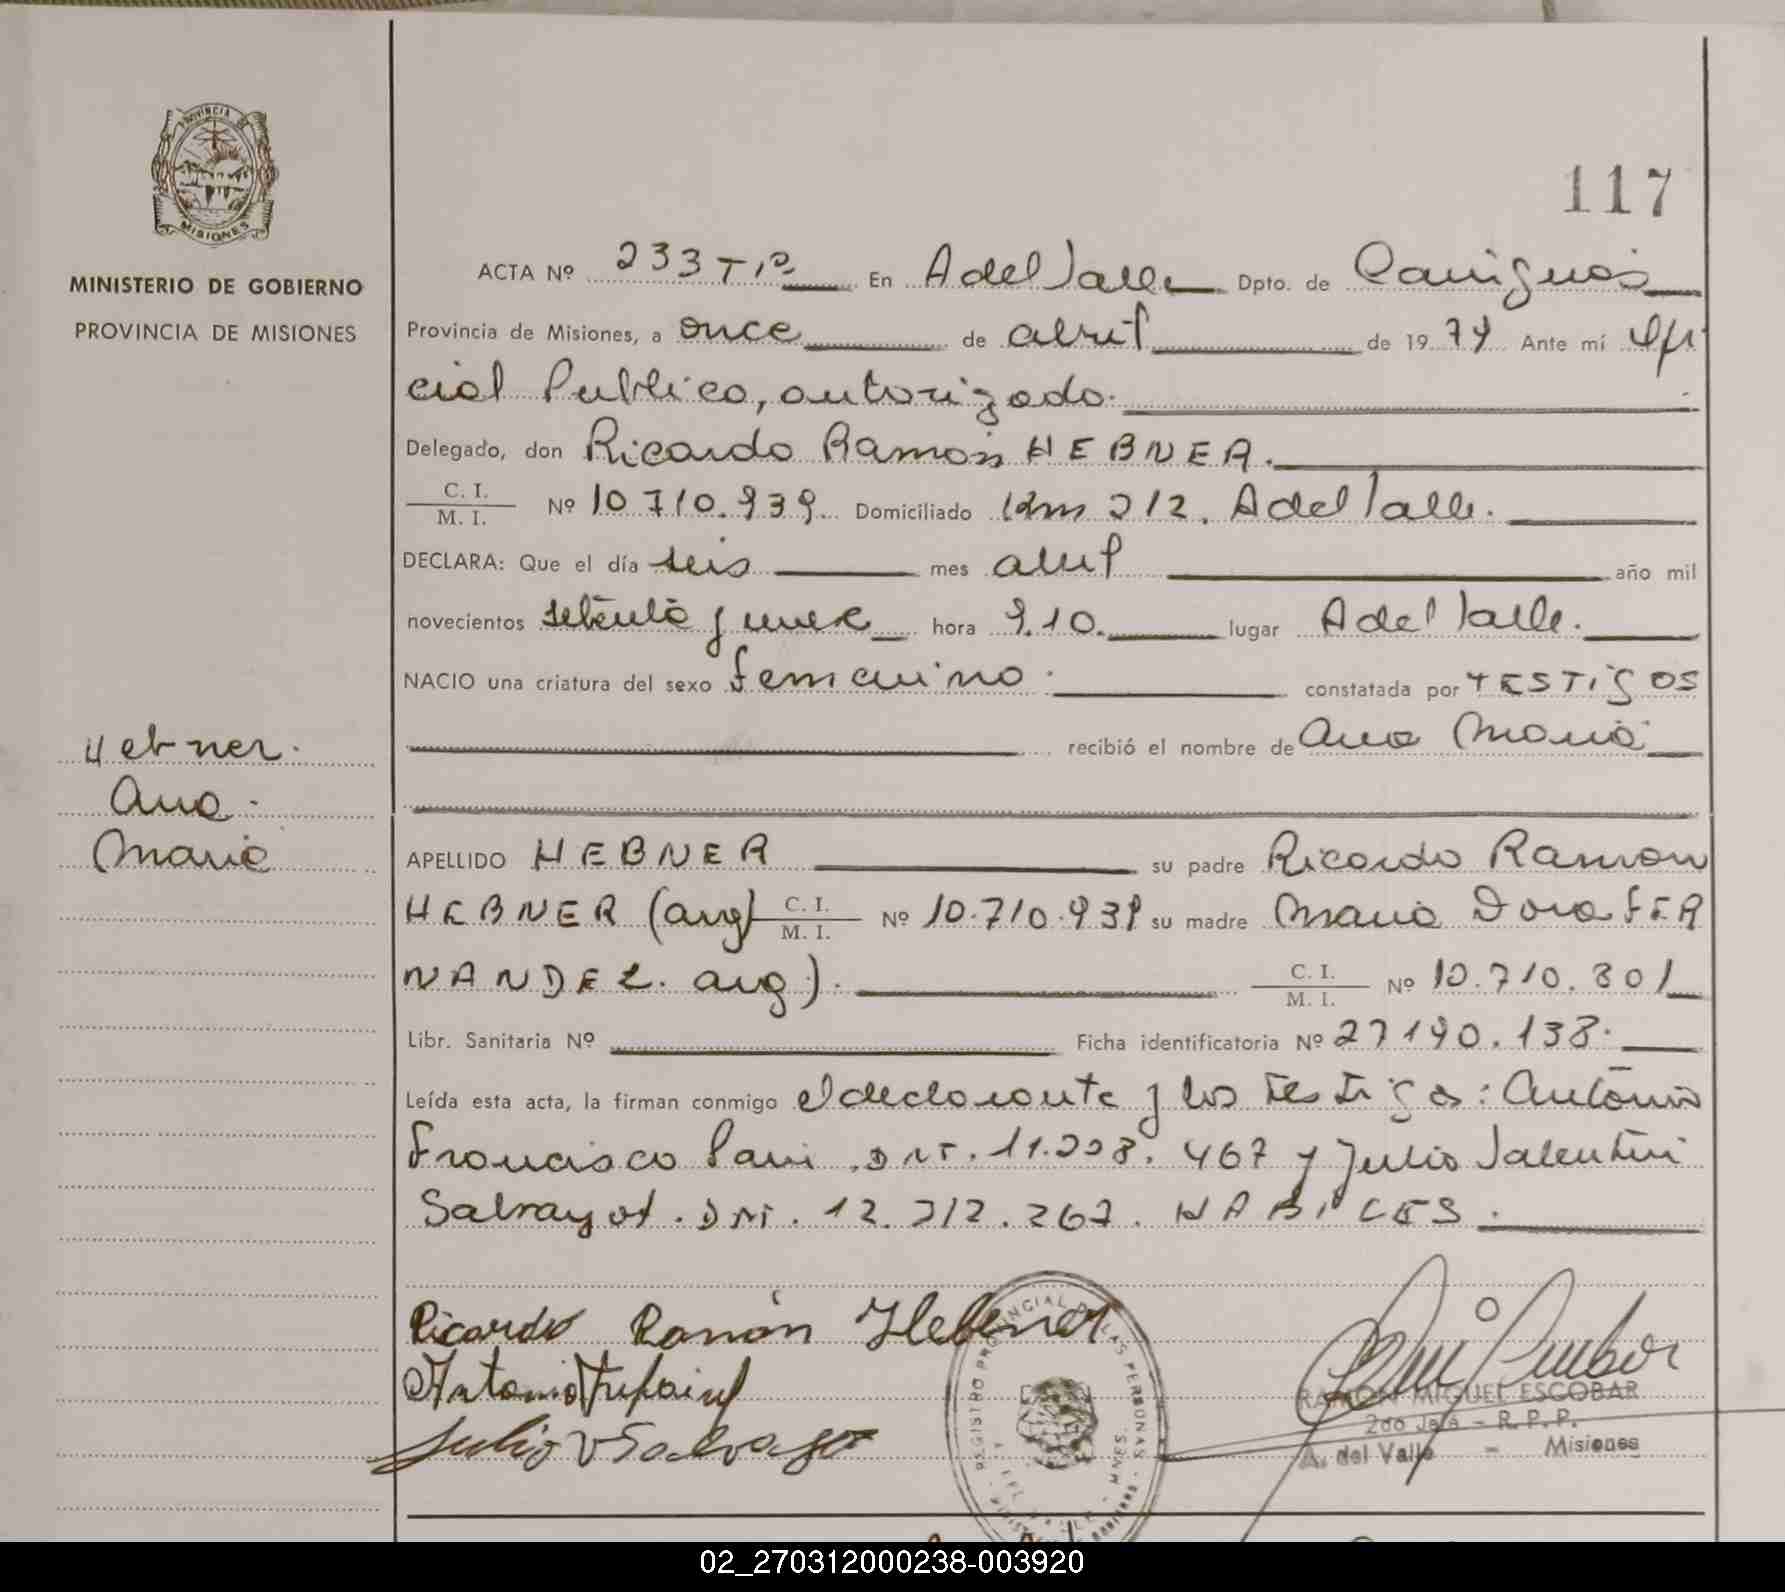 117
PROVINCIA DE
MISIONES
MINISTERIO DE GOBIERNO
PROVINCIA DE MISIONES
ACTA Nº 233 Tº1º En A del Valle Dpto. de Cainguas
Provincia de Misiones, a once de abril de 1979 Ante mí Ofi
cial Publico, autorizado.
Delegado, don Ricardo Ramón HEBNER.
C. I.
M. I. Nº 10.710.939. Domiciliado Km 212. A del Valle.
DECLARA: Que el día seis mes abril año mil
novecientos setenta y nueve hora 9.10. lugar A del Valle.
NACIO una criatura del sexo femenino. constatada por TESTIGOS
recibió el nombre de Ana Maria
Hebner.
Ana.
Maria
APELLIDO HEBNER su padre Ricardo Ramon
HEBNER (arg) C. I.
M. I. Nº 10.710.939 su madre Maria Dora FER
NANDEZ. arg). C. I.
M. I. Nº 10.710.801
Libr. Sanitaria Nº Ficha identificatoria Nº 27190.138.
Leída esta acta, la firman conmigo el declarante y los testigos: Antonio
Francisco DNI. 11.228.467 y Julio Valentin
DNI. 12.212.267. HABILES.
Ricardo Ramón Hebner
Antonio
Julio V
REGISTRO PROVINCIAL DE LAS PERSONAS
RAMON MIGUEL ESCOBAR
2do Jefe - R. P. P.
A. del Valle - Misiones
02_270312000238-003920